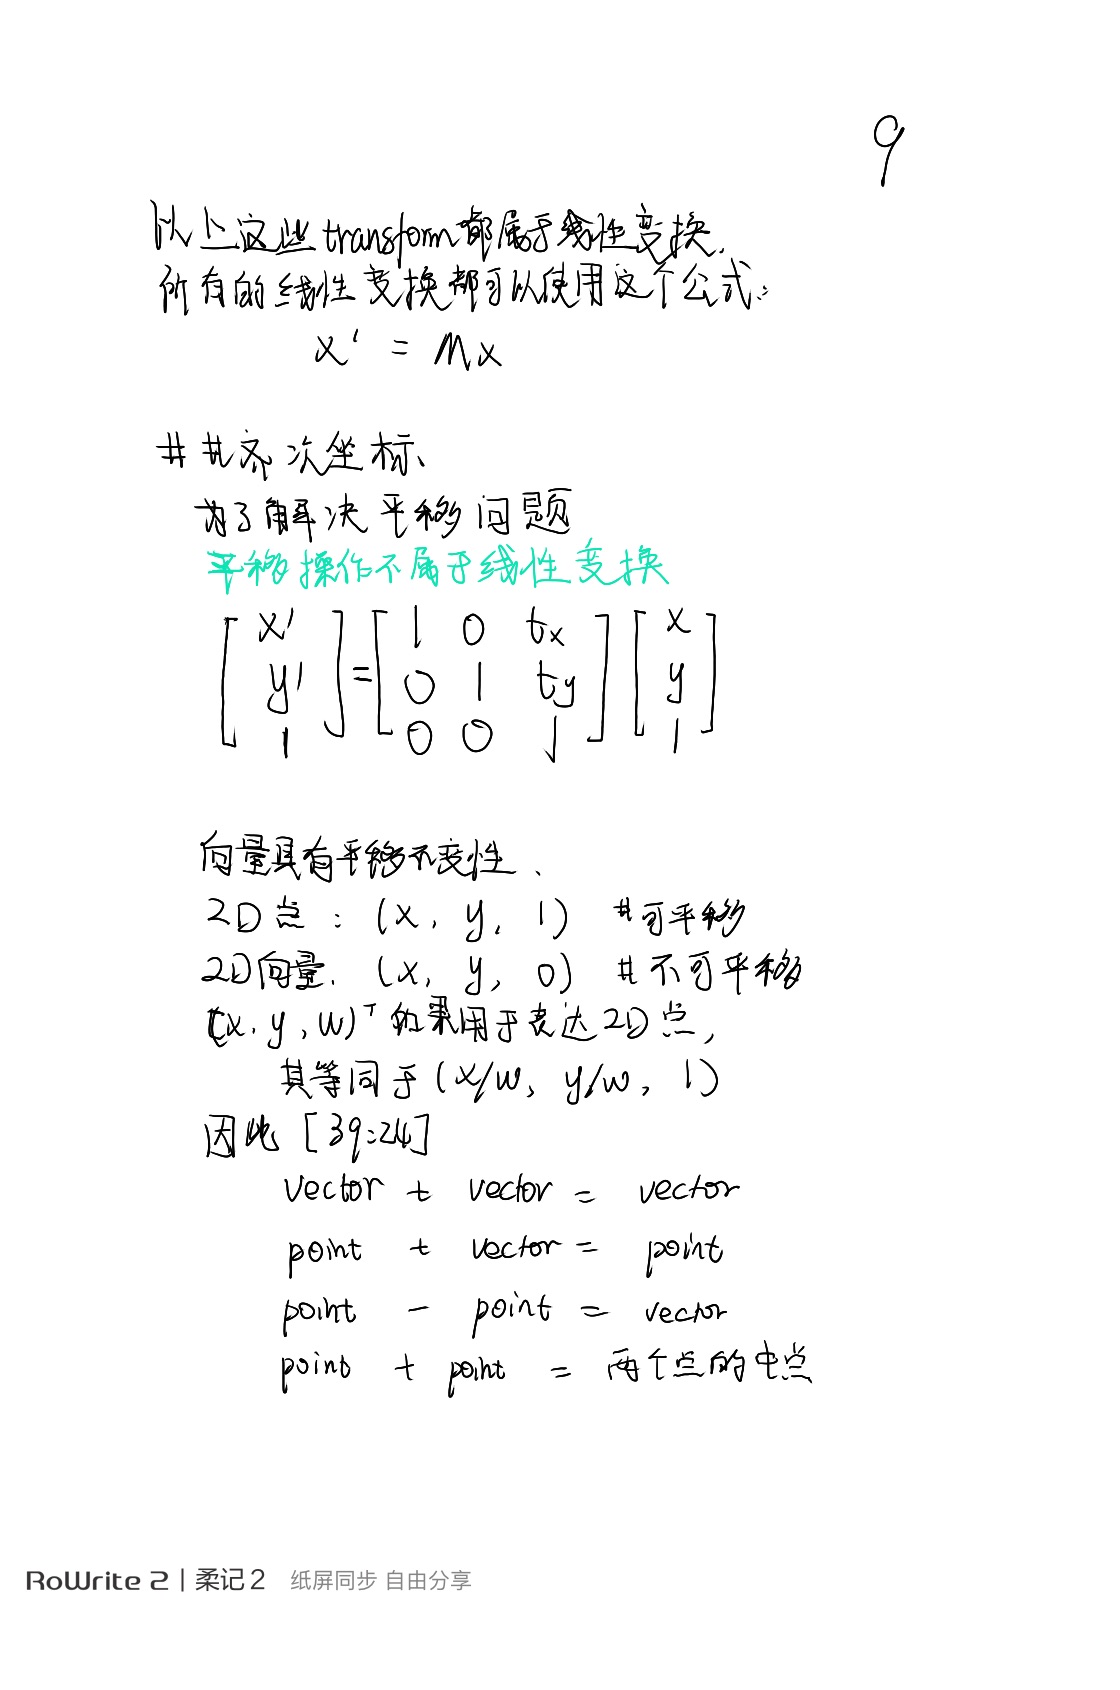 9
以上这些transform都属于线性变换.
所有的线性变换都可以使用这个公式:
x' = Mx
##齐次坐标、
为了解决平移问题
平移操作不属于线性变换
[x'] = [1 0 tx] [x]
[y'] [0 1 ty] [y]
[1] [0 0 1] [1]
向量具有平移不变性.
2D点: (x, y, 1) #可平移
2D向量. (x, y, 0) #不可平移
(x, y, w)ᵀ 如果用于表达2D点,
其等同于(x/w, y/w, 1)
因此 [39:24]
vector + vector = vector
point + vector = point
point - point = vector
point + point = 两个点的中点
RoWrite 2 | 柔记2 纸屏同步 自由分享